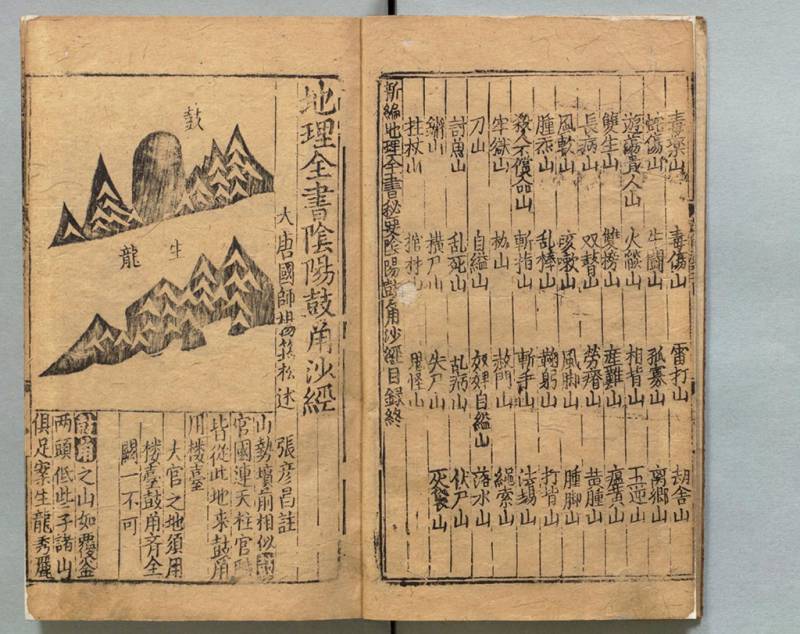 毒藥山 毒傷山 雷打山 刼舍山
蛇傷山 牛鬪山 孤寡山 離鄉山
人山 火燄山 相背山 五逆山
雙生山 雙榜山 產難山 瘟黃山
長病山 双瞽山 山 黃腫山
風軟山 咳嗽山 風脚山 腫脚山
腫山 乱棒山 鞠躬山 打背山
殺人償命山 斬指山 斬手山 法場山
牢獄山 枷山 赦門山 繩索山
刀山 自縊山 奴婢自縊山 落水山
討萬山 乱死山 乱病山 伏尸山
山 横尸山 失尸山 灰袋山
拄杖山 棺材山 鬼怪山
新編地理全書秘要陰陽鼓角沙經目録終
地理全書陰陽鼓角沙經
大唐國師楊筠松述
鼓
生
龍
張彦昌註
山勢墳前相似
官國連天柱官
皆從此地來鼓角
用楼臺
大官之地須用
楼臺鼓角齊全
闕一不可
鼓角之山如覆釜
两頭低些子諸山
俱足案生龍秀麗